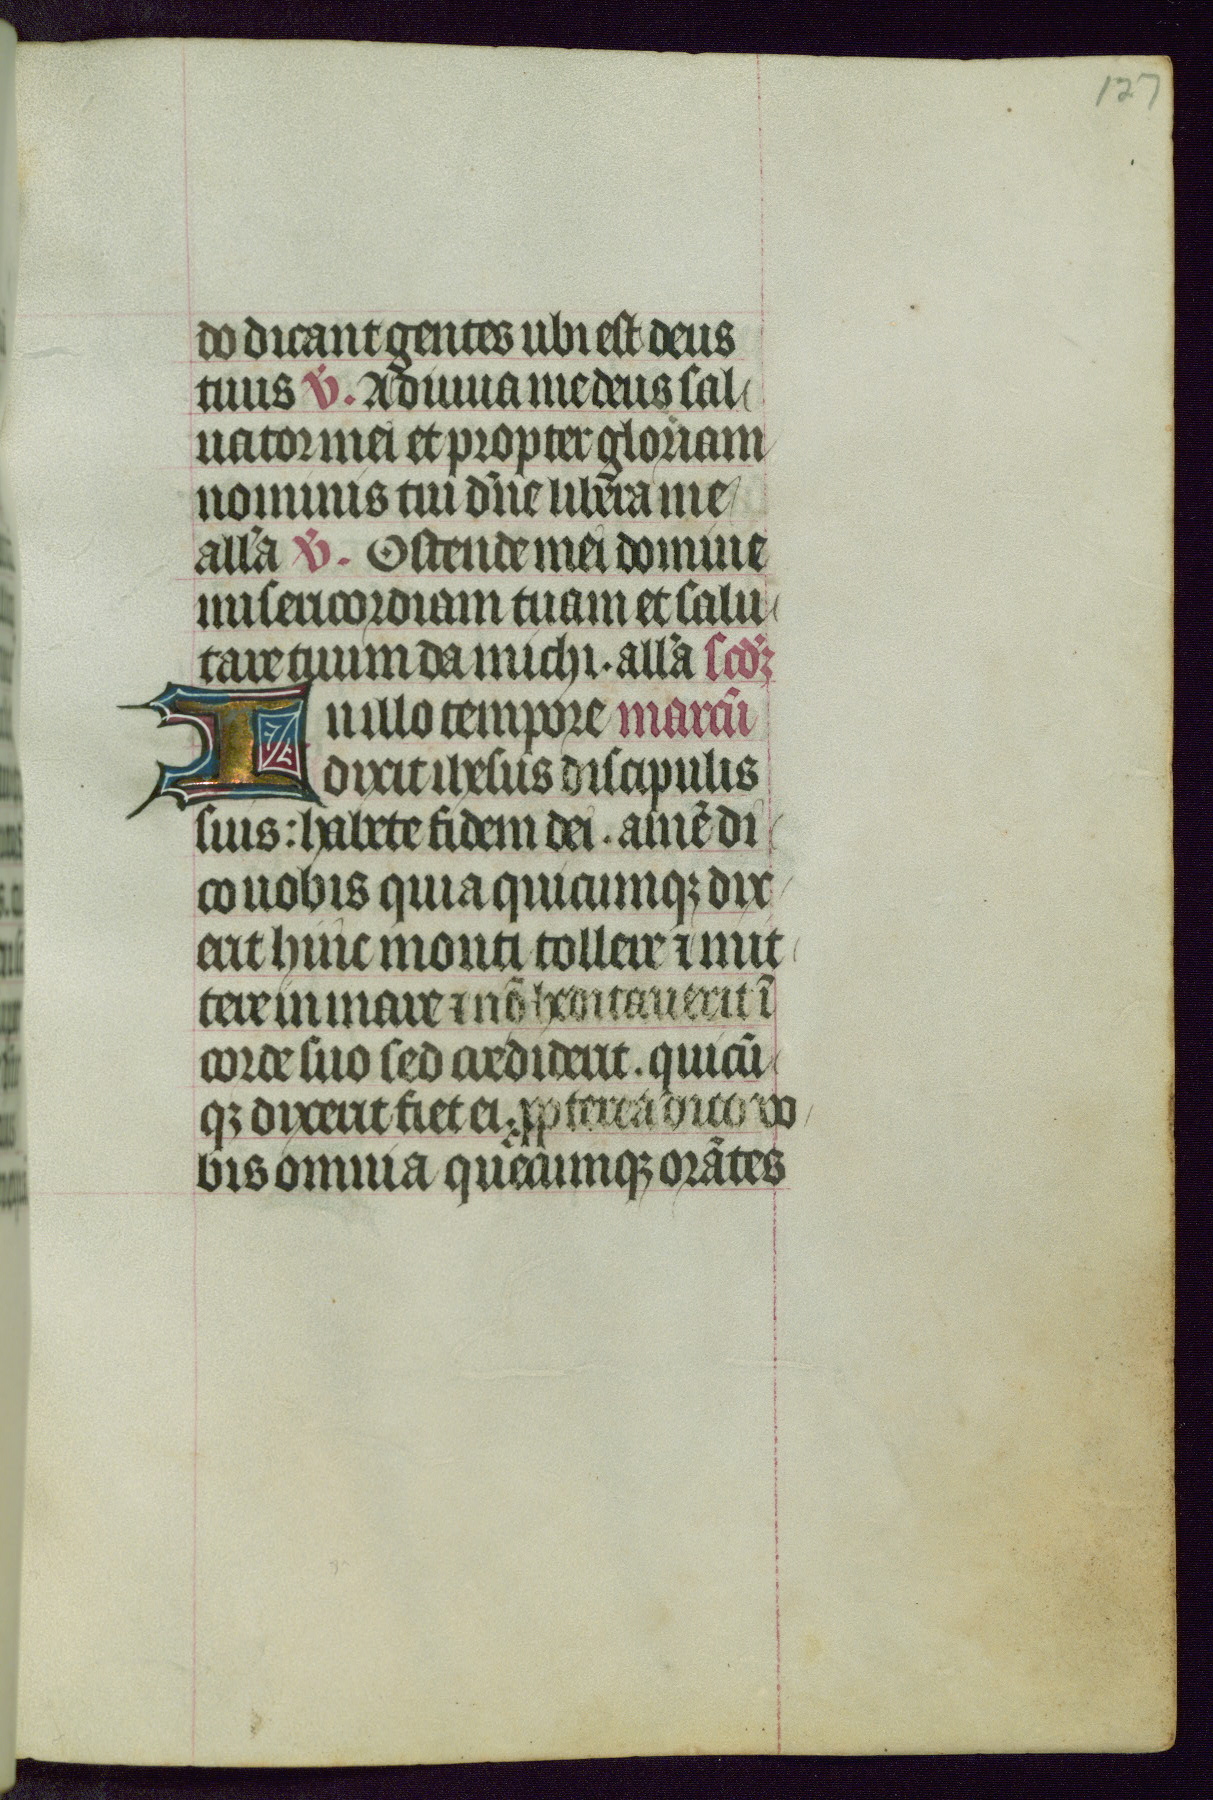 127
do dicant gentes ubi est deus
tuus v̄. Adiuua me deus sal
uator mei et propter gloriam
nominis tui dn̄e libera me
all'a v̄. Ostende mei domine
misericordiam tuam et salu
tare tuum da michi. all'a scd'ꝫ
In illo tempore marcū
dixit ihesus discipulis
suis: habete fidem dei. amē di
co uobis quia quicumqꝫ dix
erit huic monti tollere ⁊ mit
tere in mare ⁊ nō hesitauerit ī
corde suo sed crediderit. quicū
qꝫ dixerit fiet ei. ꝓpterea dico vo
bis omnia quecumqꝫ orātes